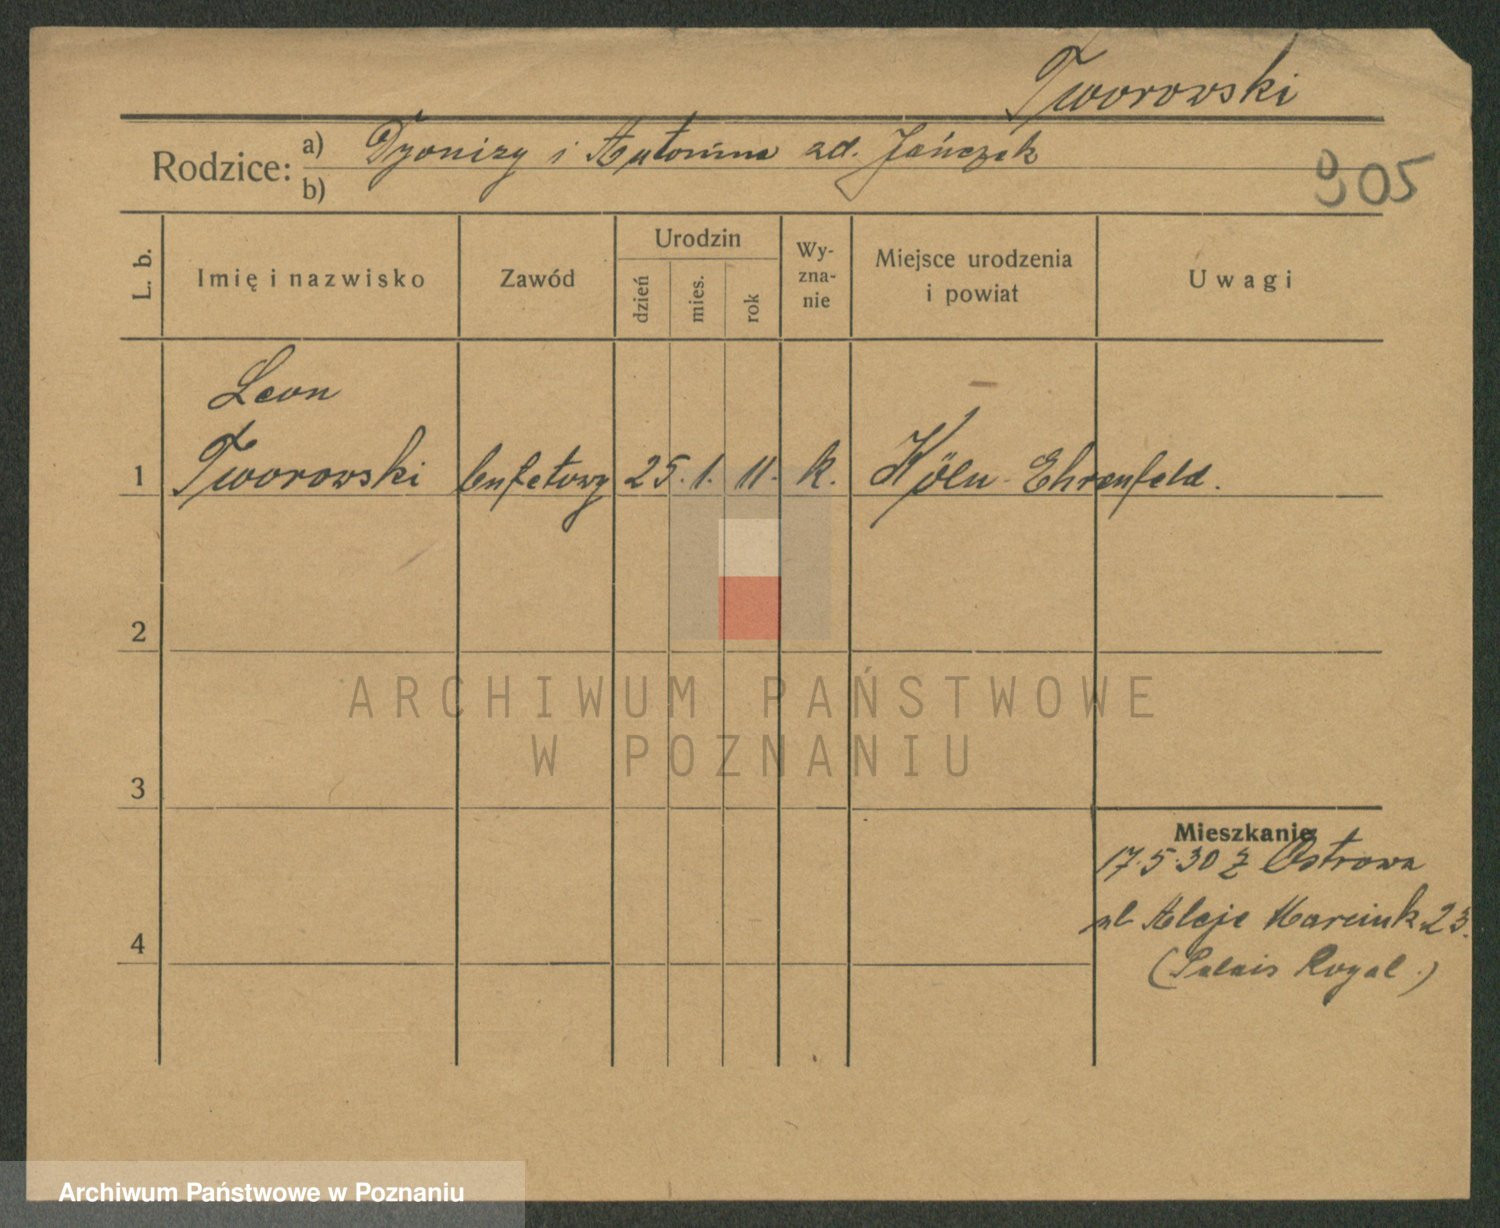 Tworowski
Rodzice: a) Dyonizy i Antonina zd. Jańczak
b)
905
L. b. Imię i nazwisko Zawód Urodzin dzień mies. rok Wyznanie Miejsce urodzenia i powiat Uwagi
Leon
1 Tworowski bufetowy 25. 1. 11. k. Köln-Ehrenfeld.
2
ARCHIWUM PAŃSTWOWE
W POZNANIU
3
Mieszkanie
17.5.30 z Ostrowa
ul Aleje Marcink 23.
4
(Palais Royal.)
Archiwum Państwowe w Poznaniu